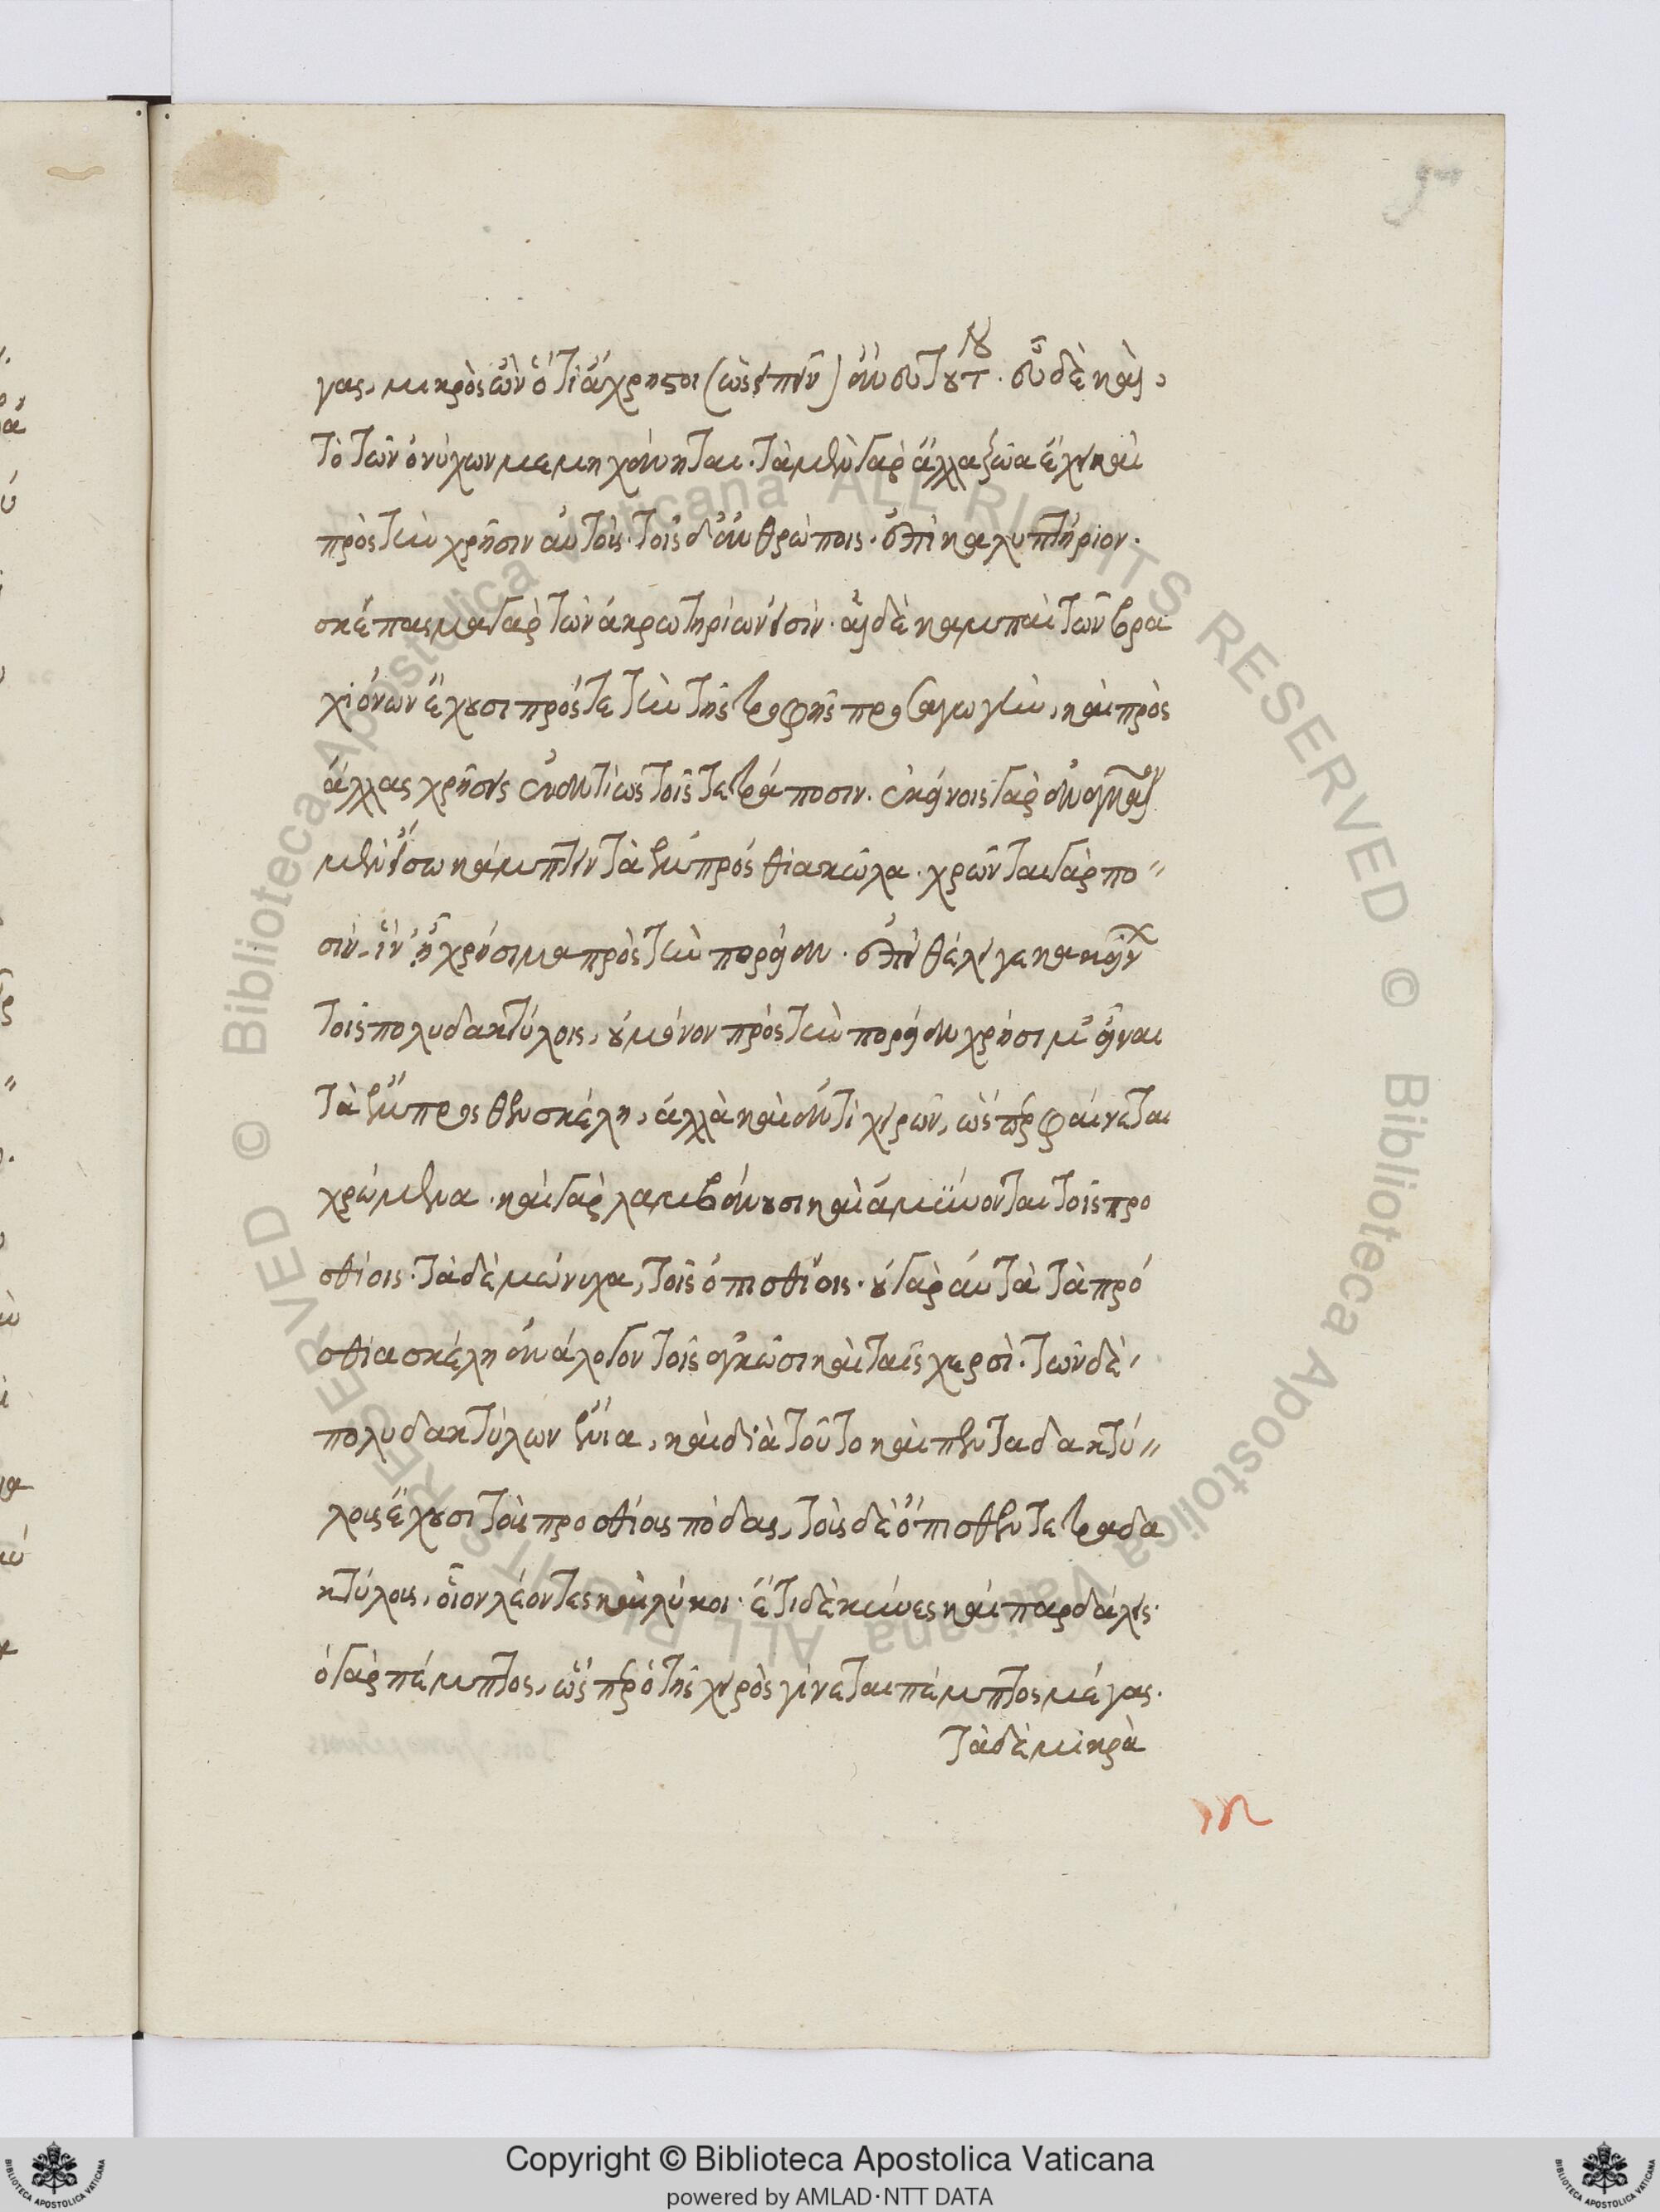 γας, μικρὸς ὢν ὅτι ἄχρηστοι (ὡς εἰπεῖν) ἄνευ τούτου. εὖ δὲ καὶ,
τὸ τῶν ὀνύχων μεμηχάνηται. τὰ μὲν γὰρ ἄλλα ζῶα ἔχει καὶ
πρὸς τὴν χρῆσιν αὐτοῖς. τοῖς δ' ἀνθρώποις. ἐπικαλυπτήριον.
σκέπασμα γὰρ τῶν ἀκρωτηρίων εἰσίν. αἱ δὲ καμπαὶ τῶν βρα
χιόνων ἔχουσι πρός τε τὴν τῆς τροφῆς προσαγωγὴν, καὶ πρὸς
ἄλλας χρήσεις ἐναντίως τοῖς τετράποσιν. ἐκείνοις γὰρ ἀναγκαῖον
μὲν εἴσω κάμπτειν τὰ ἐμπρόσθια κῶλα. χρῶνται γὰρ πο
σὶν. ἵν' ᾖ χρήσιμα πρὸς τὴν πορείαν. ἐπεὶ θέλει γε κακείνων
τοῖς πολυδακτύλοις, οὐ μόνον πρὸς τὴν πορείαν χρήσιμ' εἶναι
τὰ ἔμπροσθεν σκέλη, ἀλλὰ καὶ ἀντὶ χειρῶν, ὥσπερ φαίνεται
χρώμενα. καὶ γὰρ λαμβάνουσι καὶ ἀμύνονται τοῖς προ
σθίοις. τὰ δὲ μώνυχα, τοῖς ὀπισθίοις. οὐ γὰρ αὐτὰ τὰ πρό
σθια σκέλη ἀνάλογον τοῖς ἀγκῶσι καὶ ταῖς χερσὶ. τῶν δὲ,
πολυδακτύλων ἔνια, καὶ διὰ τοῦτο καὶ πενταδακτύ
λους ἔχουσι τοὺς προσθίους πόδας, τοὺς δὲ ὄπισθεν τετραδα
κτύλους, οἷον λέοντες καὶ λύκοι. ἔτι δὲ κύνες καὶ παρδάλεις.
ὁ γὰρ πέμπτος, ὥσπερ ὁ τῆς χειρὸς γίνεται πέμπτος μέγας.
τὰ δὲ μικρὰ